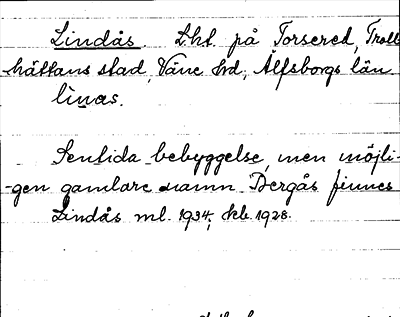 Lindås. Lht. på Torsered, Troll-
hättans stad, Väne hd, Älfsborgs län
linas.
Sentida bebyggelse, men möjli-
-gen gamlare namn. Bergås finnes
Lindås ml. 1934, kb. 1928.